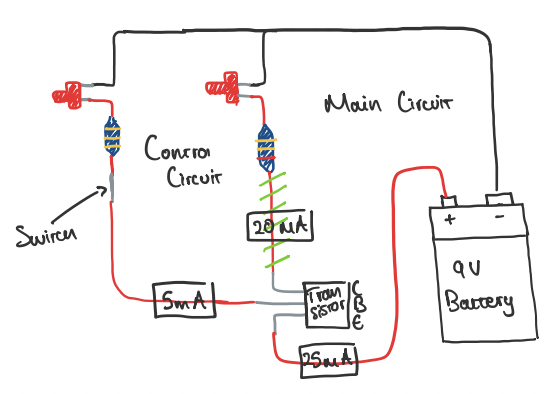 Main Circuit
Control
Circuit
Switch
20mA
5mA
Tran
sistor
C
B
E
25mA
+ -
9V
Battery